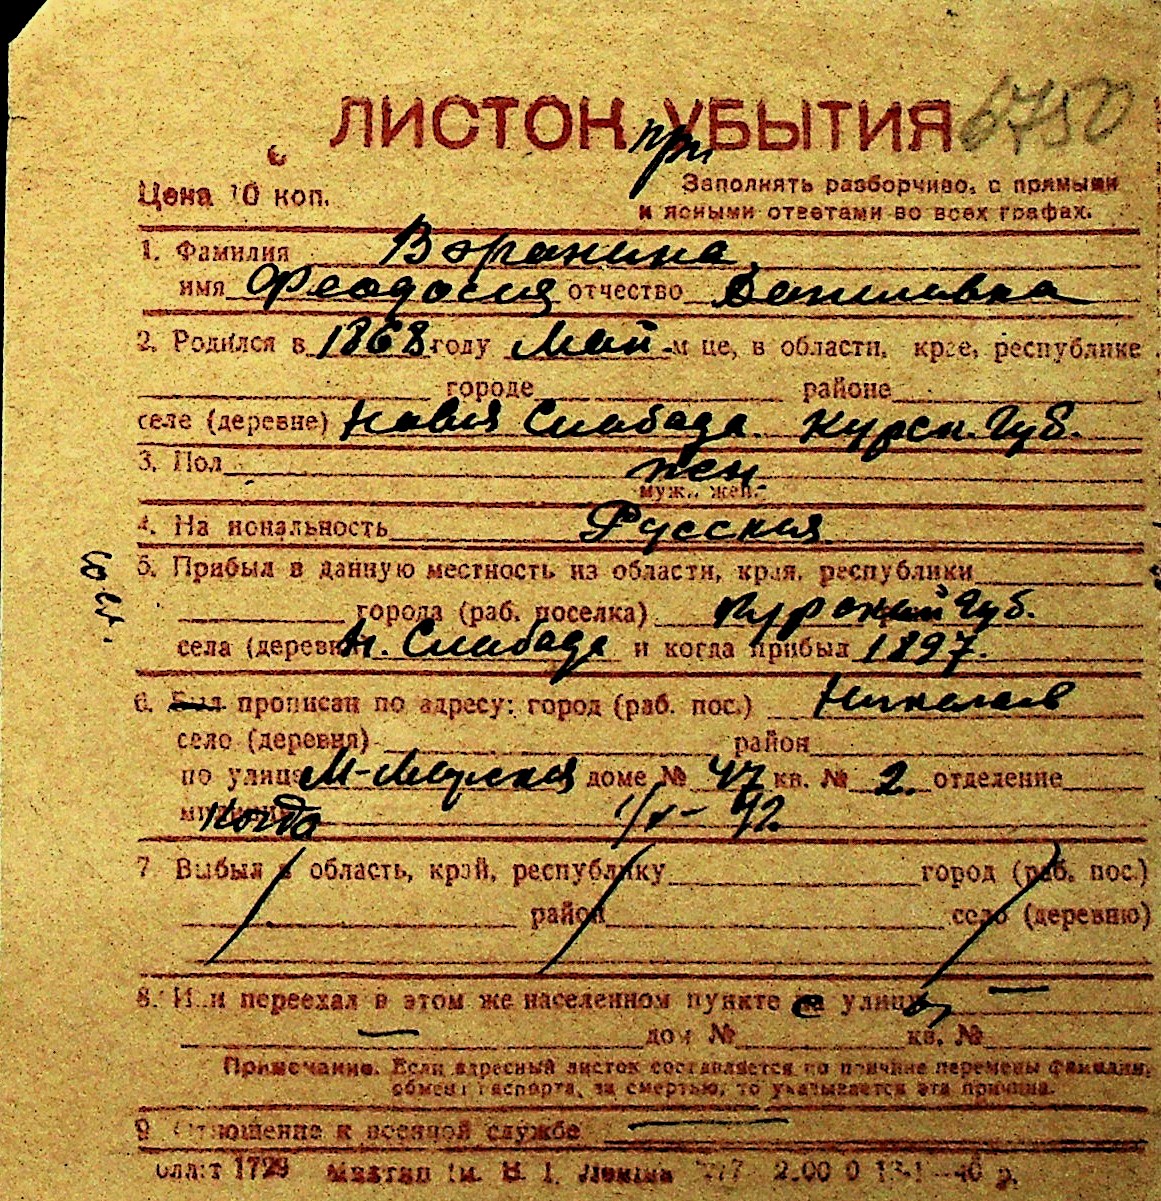 6750
ЛИСТОК при УБЫТИЯ
Цена 10 коп.
Заполнять разборчиво, с прямыми
и ясными ответами во всех графах.
1. Фамилия Воранина
имя Феодосия отчество Даниловна
2. Родился в 1868 году Май м-це, в области, крае, республике
городе районе
селе (деревне) Новая Слабада Курск. Губ.
3. Пол жен
муж., жен.
4. Национальность Русская
5. Прибыл в данную местность из области, края, республики
города (раб. поселка) Курской Губ.
села (деревни) Н. Слабада и когда прибыл 1897.
6. Был прописан по адресу: город (раб. пос.) Николаев
село (деревня) район
по улице М-Морская доме № 47 кв. № 2. отделение
милиции Когда 1/X-42.
7 Выбыл в область, край, республику город (раб. пос.)
район село (деревню)
8. Или переехал в этом же населенном пункте с улицы
дом № кв. №
Примечание. Если адресный листок составляется по причине перемены фамилии,
обмена паспорта, за смертью, то указывается эта причина.
9. Отношение к военной службе
1729 им. В. И. Ленина